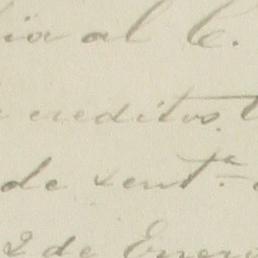 ia al C.
creditos.
de sent.ª
2 de Enero